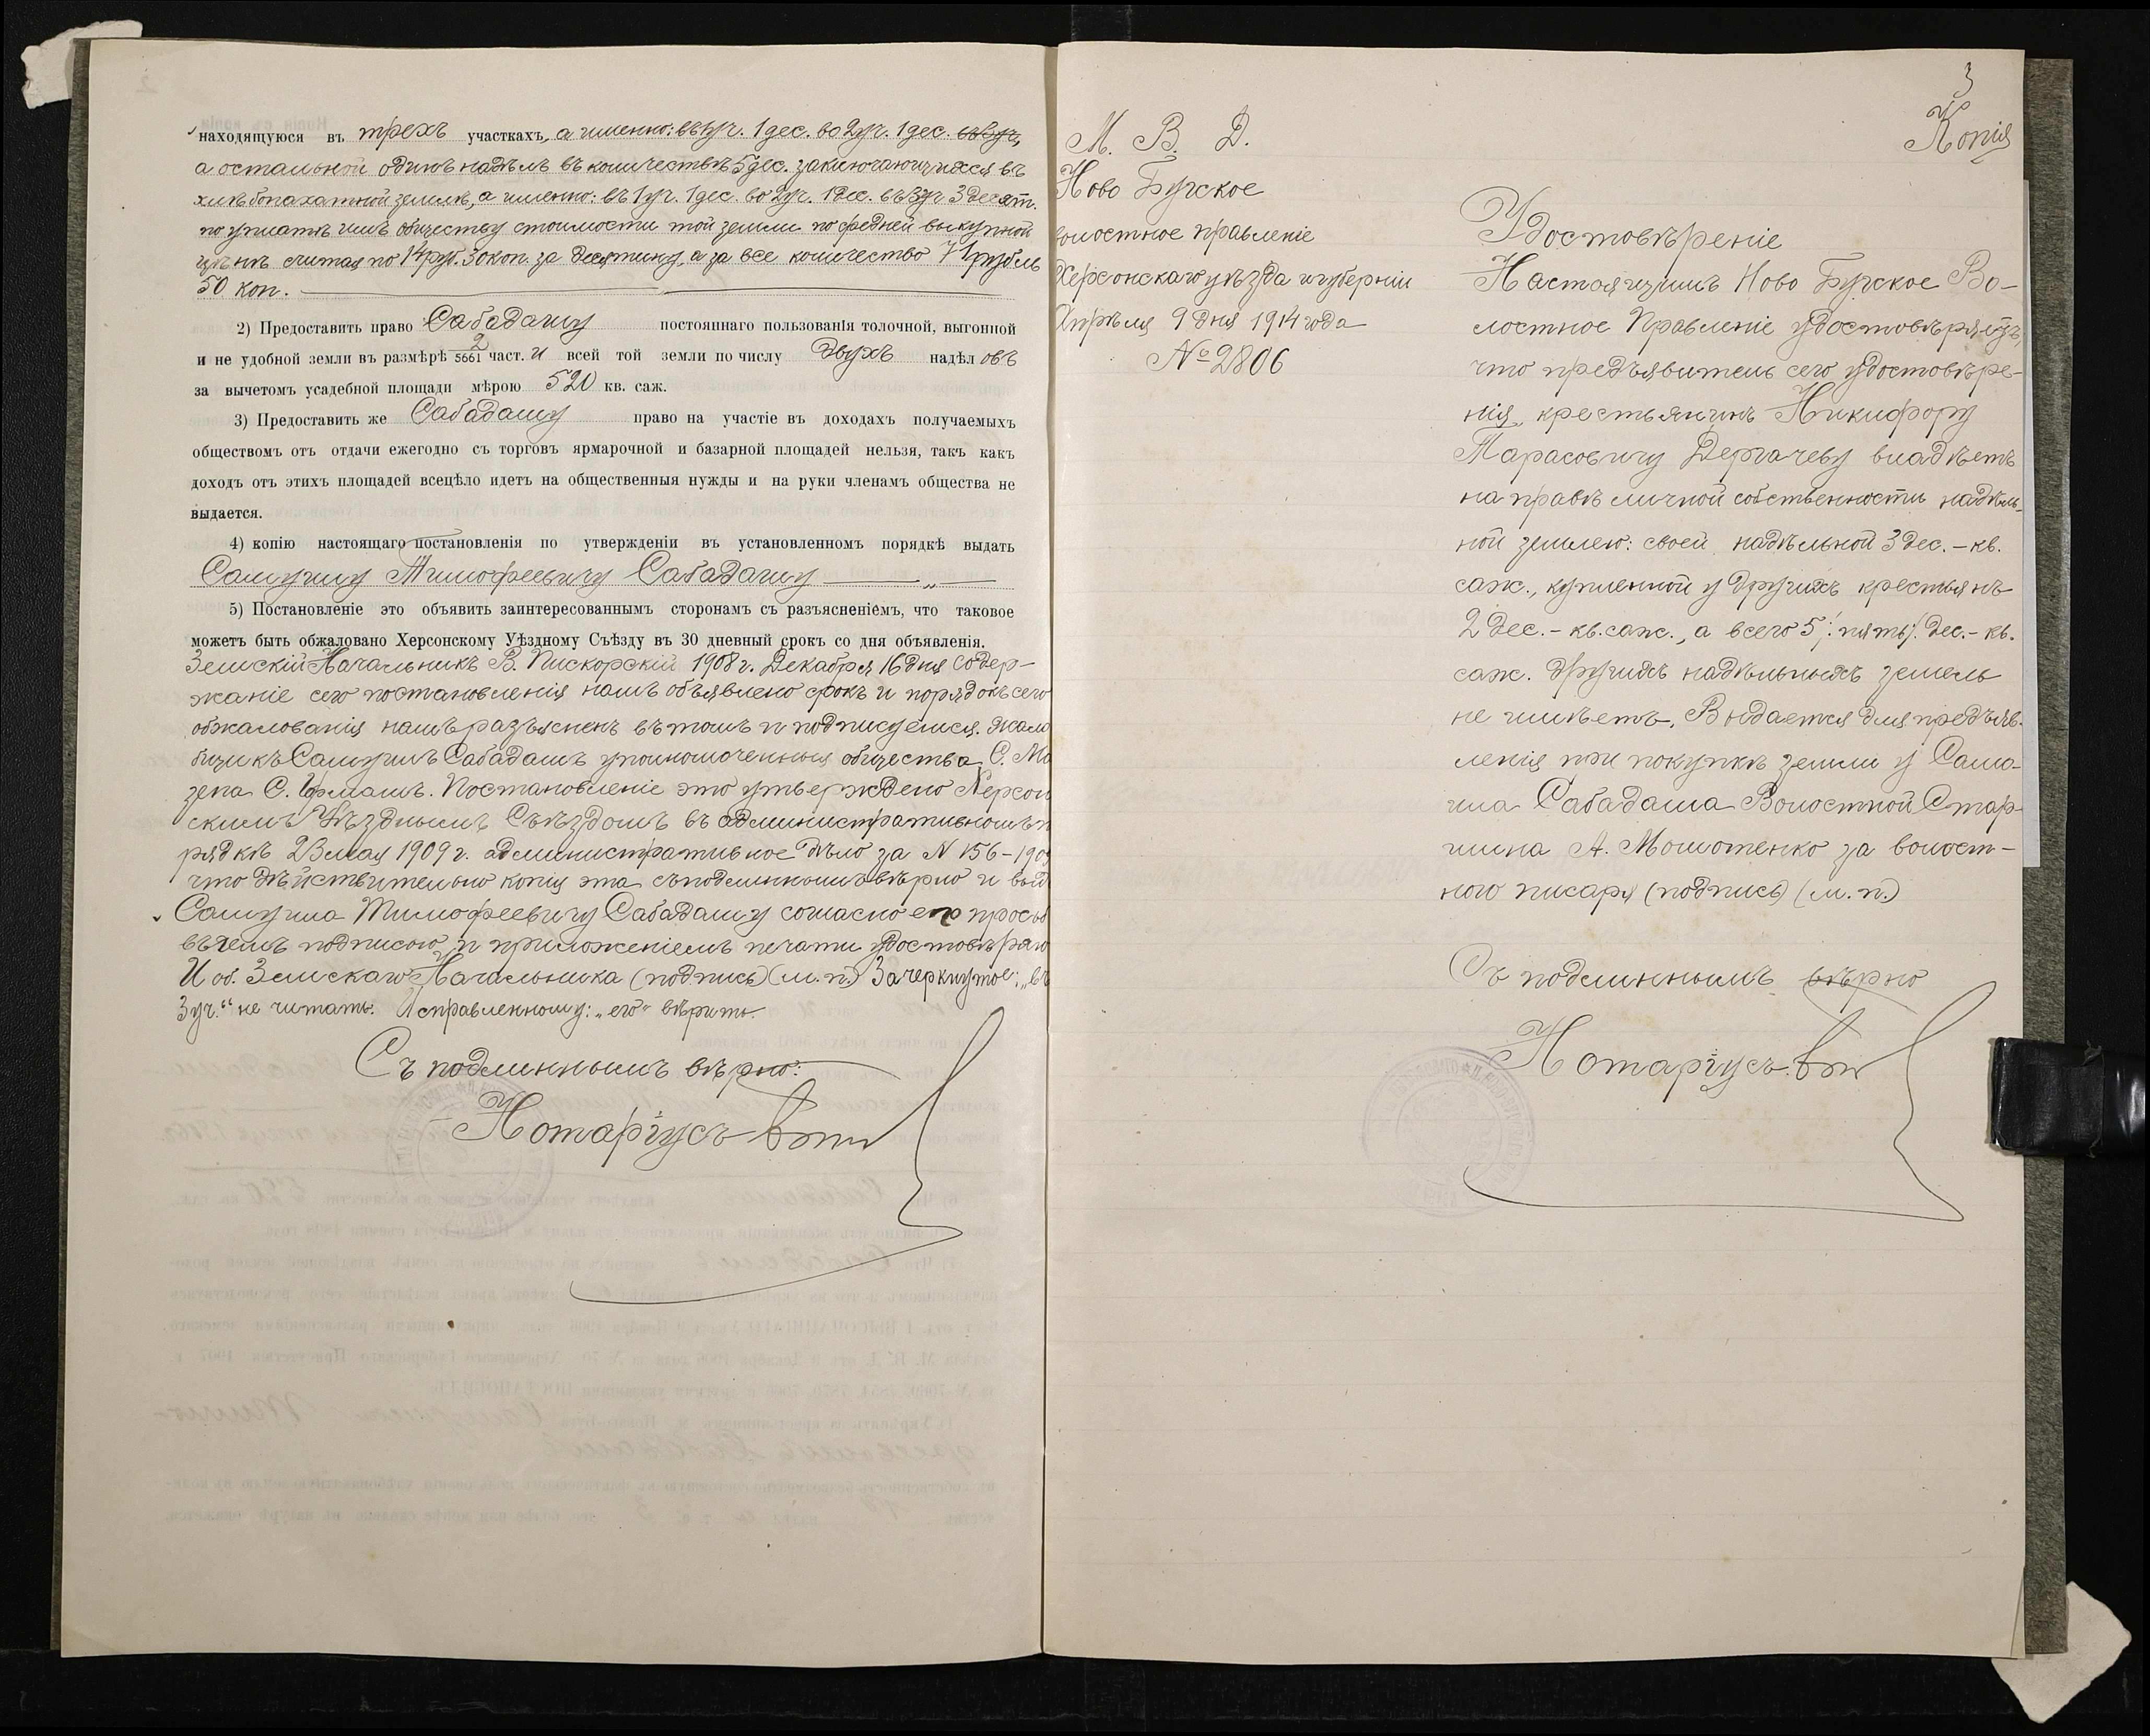 находящуюся въ трехъ участкахъ, а именно: въ 1 уч. 1 дес. во 2 уч. 1 дес. въ 3 уч.,
а остальной одинъ надѣлъ въ количествѣ 5 дес. заключающихся въ
хлѣбопахатной землѣ, а именно: въ 1 уч. 1 дес. во 2 уч. 1 дес. въ 3 уч. 3 десят.
по уплатѣ имъ обществу стоимости той земли по средней выкупной
цѣнѣ считая по 14 руб. 30 коп. за десятину, а за все количество 71 рубль
50 коп.
2) Предоставить право Сабадашу постояннаго пользованія толочной, выгонной
и не удобной земли въ размѣрѣ 2/5661 част.и всей той земли по числу двухъ надѣловъ
за вычетомъ усадебной площади мѣрою 520 кв. саж.
3) Предоставить же Сабадашу право на участіе въ доходахъ получаемыхъ
обществомъ отъ отдачи ежегодно съ торговъ ярмарочной и базарной площадей нельзя, такъ какъ
доходъ отъ этихъ площадей всецѣло идетъ на общественныя нужды и на руки членамъ общества не
выдается.
4) копію настоящаго постановленія по утвержденіи въ установленномъ порядкѣ выдать
Самуилу Тимофеевичу Сабадашу
5) Постановленіе это объявить заинтересованнымъ сторонамъ съ разъясненіемъ, что таковое
можетъ быть обжаловано Херсонскому Уѣздному Съѣзду въ 30 дневный срокъ со дня объявленія.
Земскій Начальникъ В. Пискорскій 1908 г. Декабря 16 дня содер-
жаніе сего постановленія намъ объявлено срокъ и порядокъ сего
обжалованія намъ разъясненъ въ томъ и подписуемся. Жало
бщикъ Самуилъ Сабадашъ уполномоченныя общества С. Ма
зепа С. Цфмашъ. Постановленіе это утверждено Херсон
скимъ Уѣзднымъ Съѣздомъ въ административномъ п
рядкѣ 23 мая 1909 г. административное дѣло за N 156-1909
что дѣйствительно копія эта съ подлиннымъ вѣрно и выд
Самуила Тимофеевичу Сабадашу согласно его просьб
въ чемъ подписою и приложеніемъ печати удостовѣряю
И об. Земскаго Начальника (подпись) (м. п.) Зачеркнутое: „въ
3 уч.“ не читать. Исправленному: „его“ вѣрить.
Съ подлиннымъ вѣрно:
Нотаріусъ
3
Копія
М. В. Д.
Ново Бугское
волостное правленіе
Херсонскаго уѣзда и губерніи
Апрѣля 9 дня 1914 года
№ 2806
Удостовѣреніе
Настоящимъ Ново Бугское Во-
лостное Правленіе удостовѣряетъ,
что предъявитель сего удостовѣре-
нія, крестьянинъ Никифору
Тарасовичу Дергачеву владѣетъ
на правѣ личной собственности надѣль-
ной землею: своей надѣльной 3 дес. - кв.
саж., купленной у другихъ крестьянъ
2 дес. - кв. саж., а всего 5 /: пять :/ дес. - кв.
саж. Другихъ надѣльныхъ земель
не имѣетъ. Выдается для предъяв-
ленія при покупкѣ земли у Саму-
ила Сабадаша Волостной Стар-
шина А. Молотенко за волост-
ного писаря (подпись) (м. п.)
Съ подлиннымъ вѣрно
Нотаріусъ